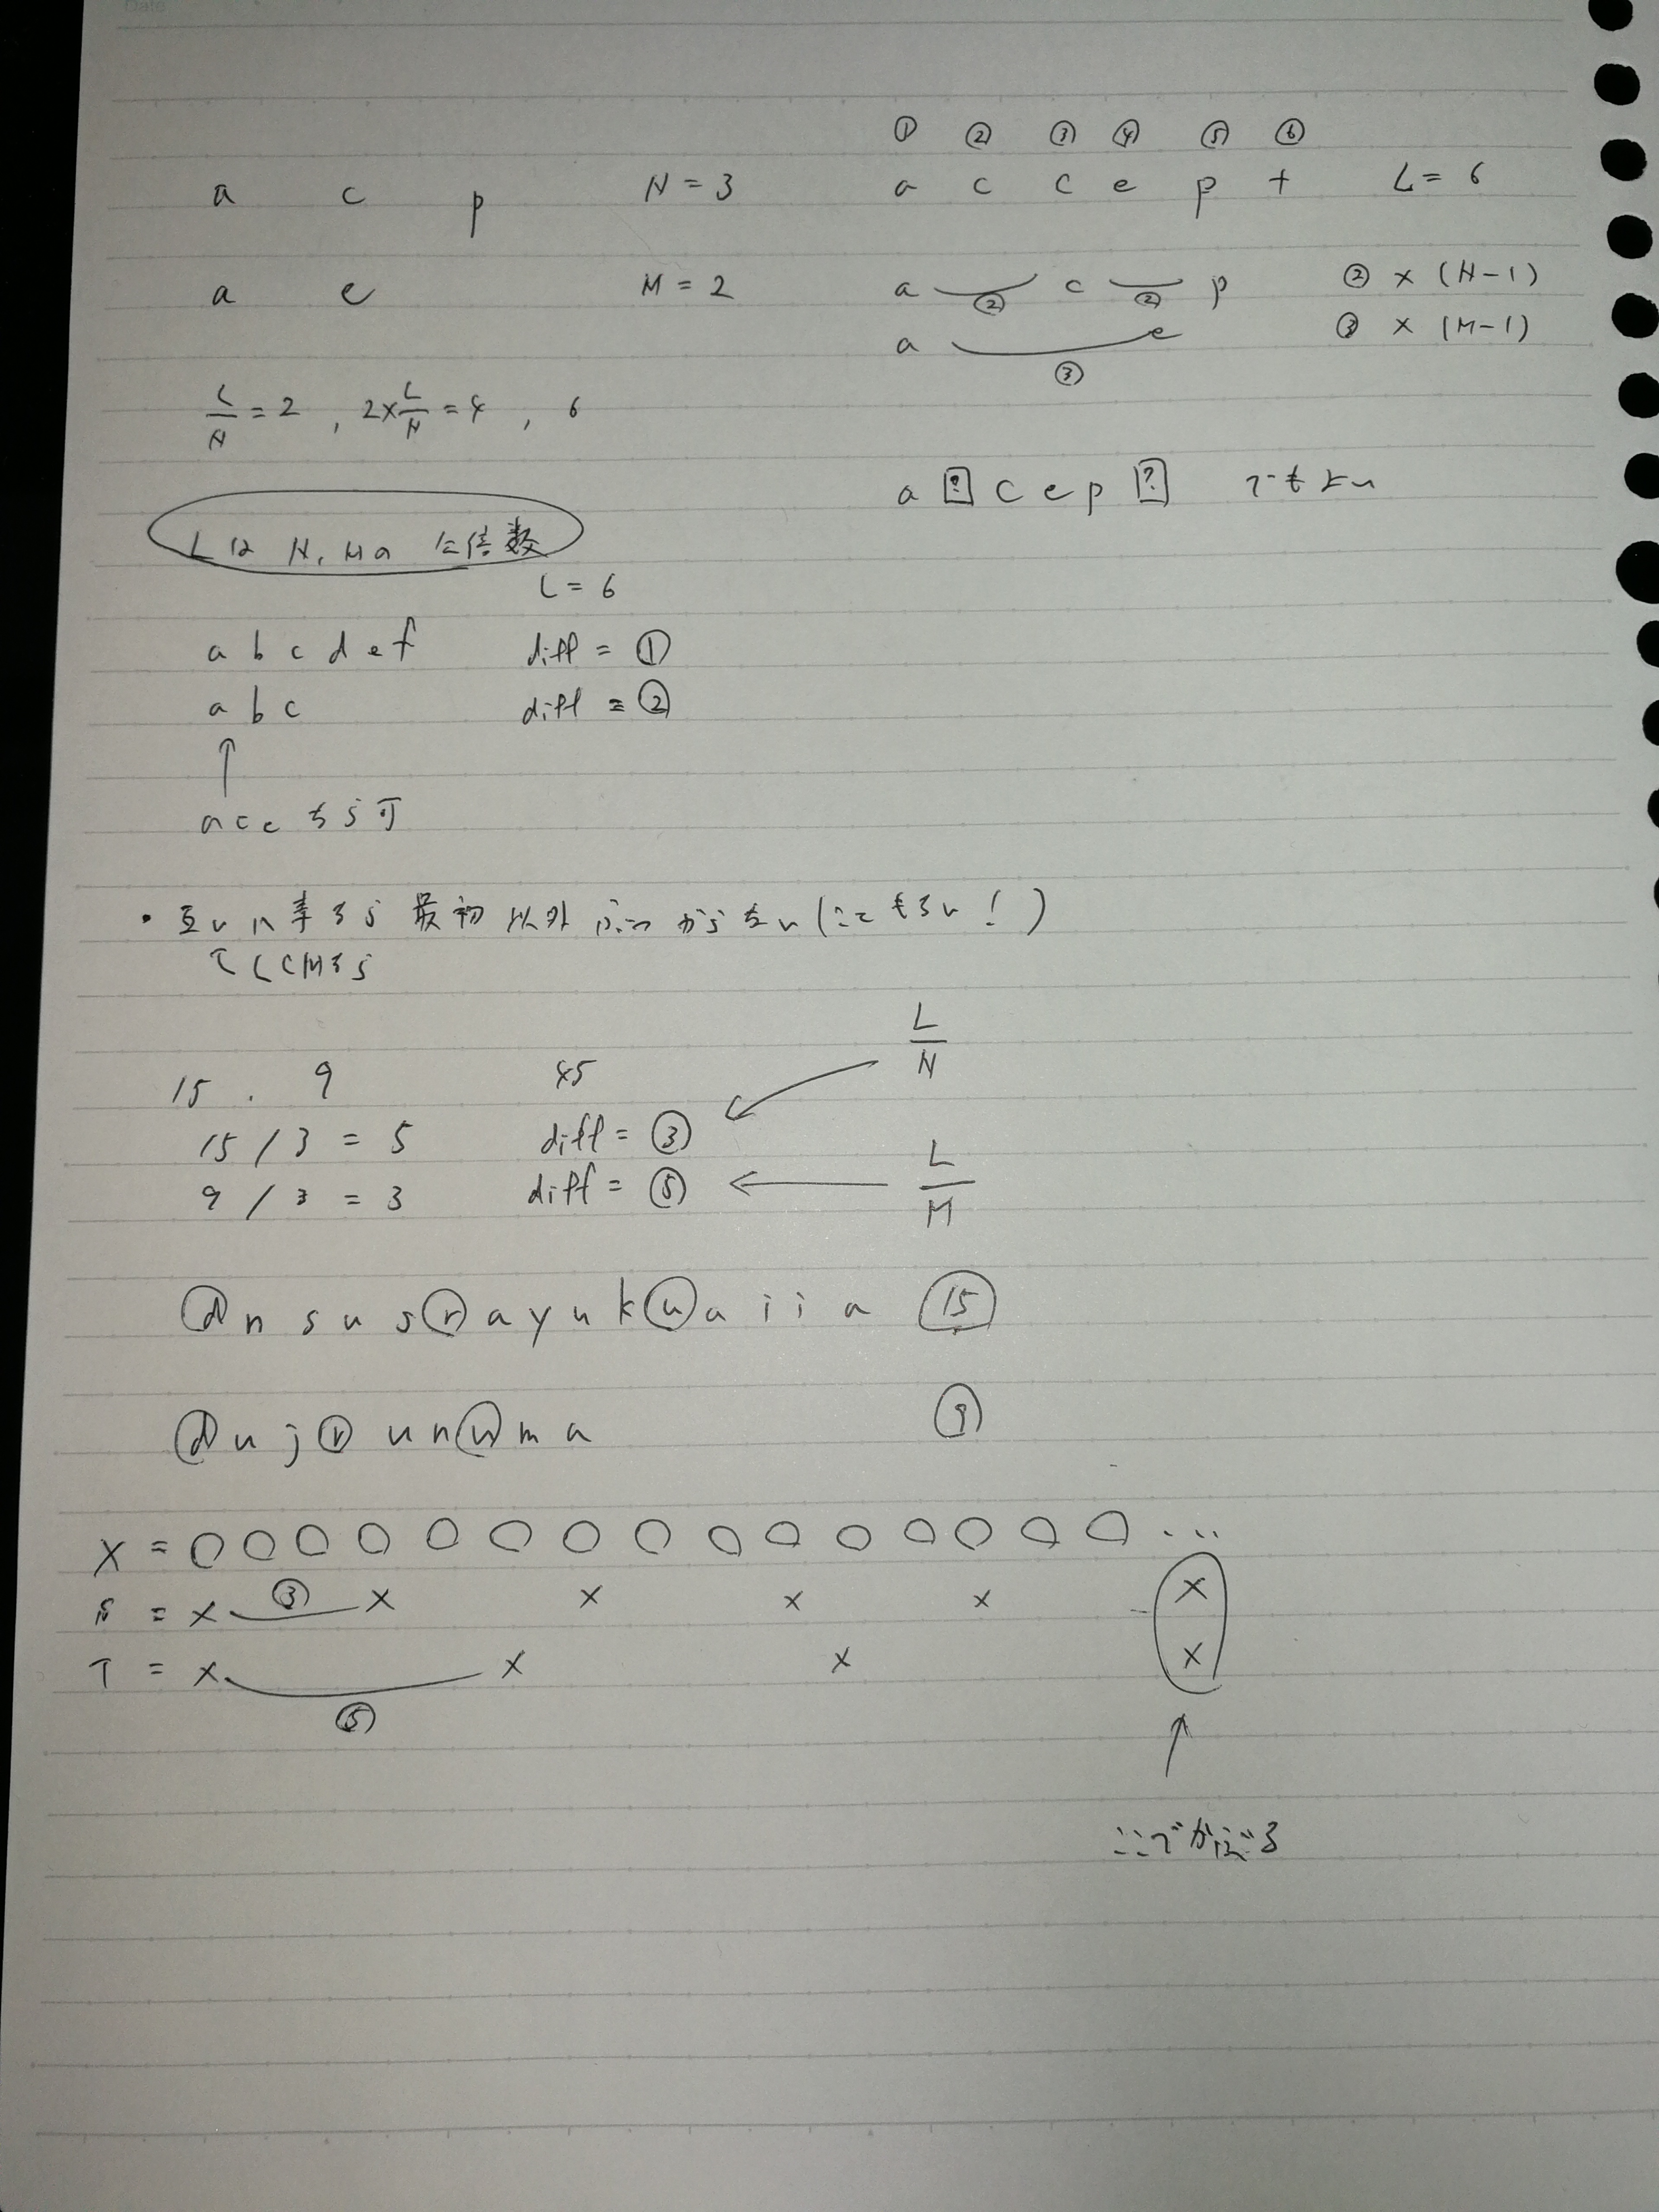 Date
① ② ③ ④ ⑤ ⑥
a c p N = 3 a c c e p t L = 6
a e M = 2 a ② c ② p ② × (N-1)
a ③ e ③ × (M-1)
L/N = 2 , 2×L/N = 4 , 6
a ? c e p ? でもよい
Lは N, Mの 公倍数
L = 6
a b c d e f diff = ①
a b c diff = ②
↑
a c e なら可
・互いに素なら 最初以外 ぶつからない (こともない!)
でLCMなら
15 . 9 45 L/N
15 / 3 = 5 diff = ③
9 / 3 = 3 diff = ⑤ L/M
d n s u s r a y u k u a i i a 15
d u j r u n u m a 9
X = ○ ○ ○ ○ ○ ○ ○ ○ ○ ○ ○ ○ ○ ○ ○ ...
S = × ③ × × × × ×
T = × ⑤ × × ×
↑
ここでかぶる